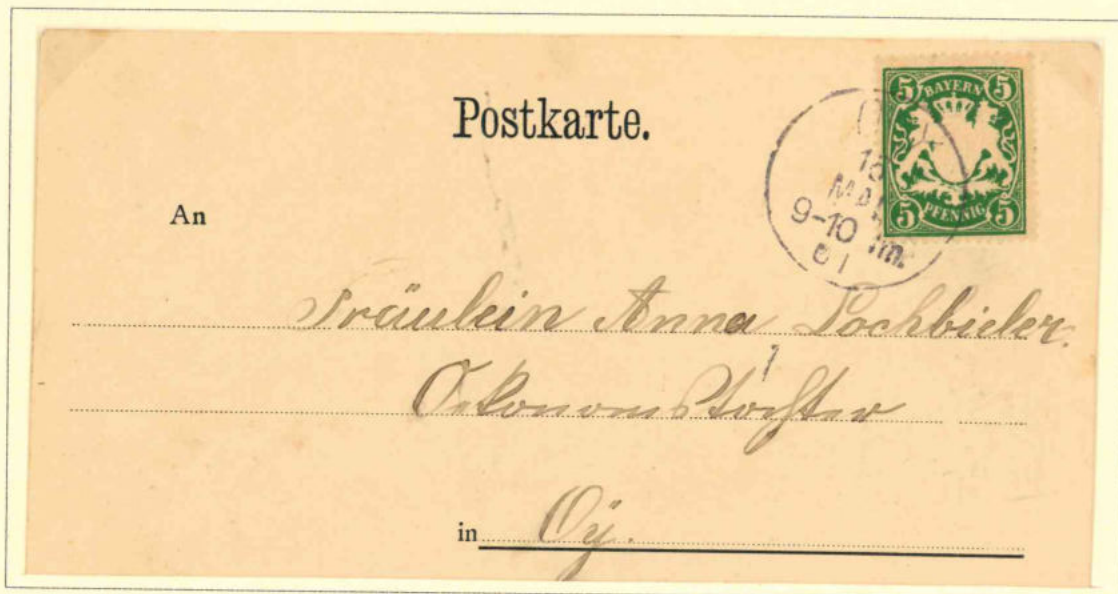 Postkarte.
5 BAYERN 5
5 PFENNIG 5
MAI
9-10 Vm.
01
An
Fräulein Anna Lochbieler.
Oekonomstochter
in Oÿ.